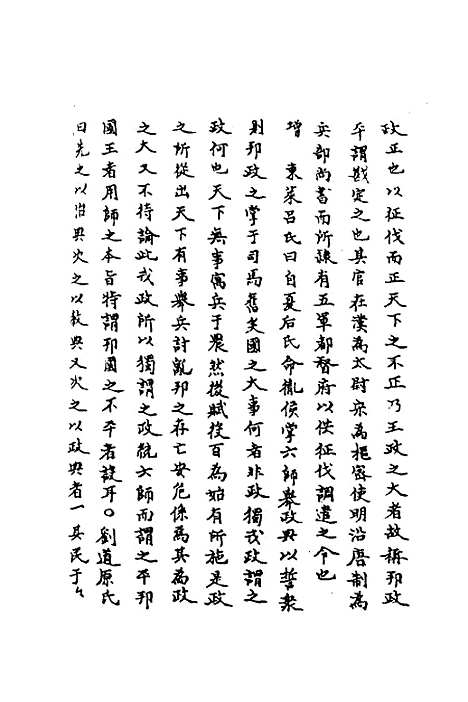 政正也以征伐而正天下之不正乃王政之大者故稱邦政
平謂戡定之也其官在漢為太尉宋為樞密使明沿唐制為
兵部尚書而所隷有五軍都督府以供征伐調遣之令也
增　東萊呂氏曰自夏后氏命胤侯掌六師舉政典以誓衆
則邦政之掌于司馬舊矣國之大事何者非政獨戎政謂之
政何也天下無事寓兵于農然後賦役百為始有所施是政
之所從出天下有事舉兵討亂邦之存亡安危係焉其為政
之大又不待論此戎政所以獨謂之政統六師而謂之平邦
國王者用師之本旨特謂邦國之不平者設耳○劉道原氏
曰先之以治典次之以教典又次之以政典者一其民于